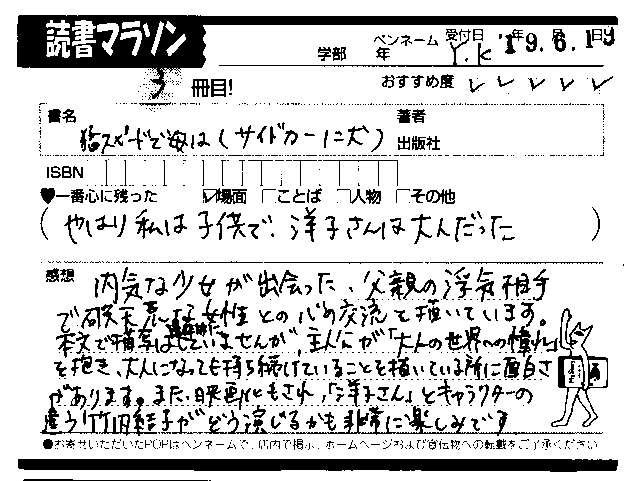 読書マラソン
学部 年 ペンネーム Y.K 受付日 '19年6月19日
3 冊目!
おすすめ度 ✓ ✓ ✓ ✓ ✓
書名 猛スピードで母は(サイドカーに犬)
著者
出版社
ISBN
♥一番心に残った ☑場面 □ことば □人物 □その他
(やはり私は子供で、洋子さんは大人だった)
感想 内気な少女が出会った、父親の浮気相手
で破天荒な女性との心の交流を描いています。
本文で描写はしていませんが、主人公が「大人の世界への憧れ」
を抱き、大人になっても持ち続けていることを描いている所に面白さ
があります。また、映画化もされ、「洋子さん」とキャラクターの
違う竹内結子がどう演じるかも非常に楽しみです
●お寄せいただいたPOPはペンネームで、店内で掲示、ホームページおよび宣伝物への転載をご了承ください